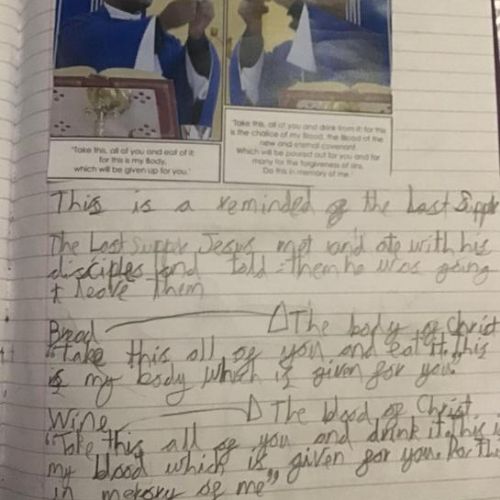 "Take this, all of you and eat of it
for this is my Body,
which will be given up for you."
"Take this, all of you and drink from it: for this
is the chalice of my Blood, the Blood of the
new and eternal covenant
Which will be poured out for you and for
many for the forgiveness of sins.
Do this in memory of me."
This is a reminded of the Last Supper
The Last Supper Jesus met and ate with his
disciples and told them he was going
t leave them
Bread → The body of Christ
"Take this all of you and eat it. This
is my body which is given for you."
Wine → The blood of Christ
"Take this all of you and drink it. This is
my blood which is given for you. Do this
in memory of me"